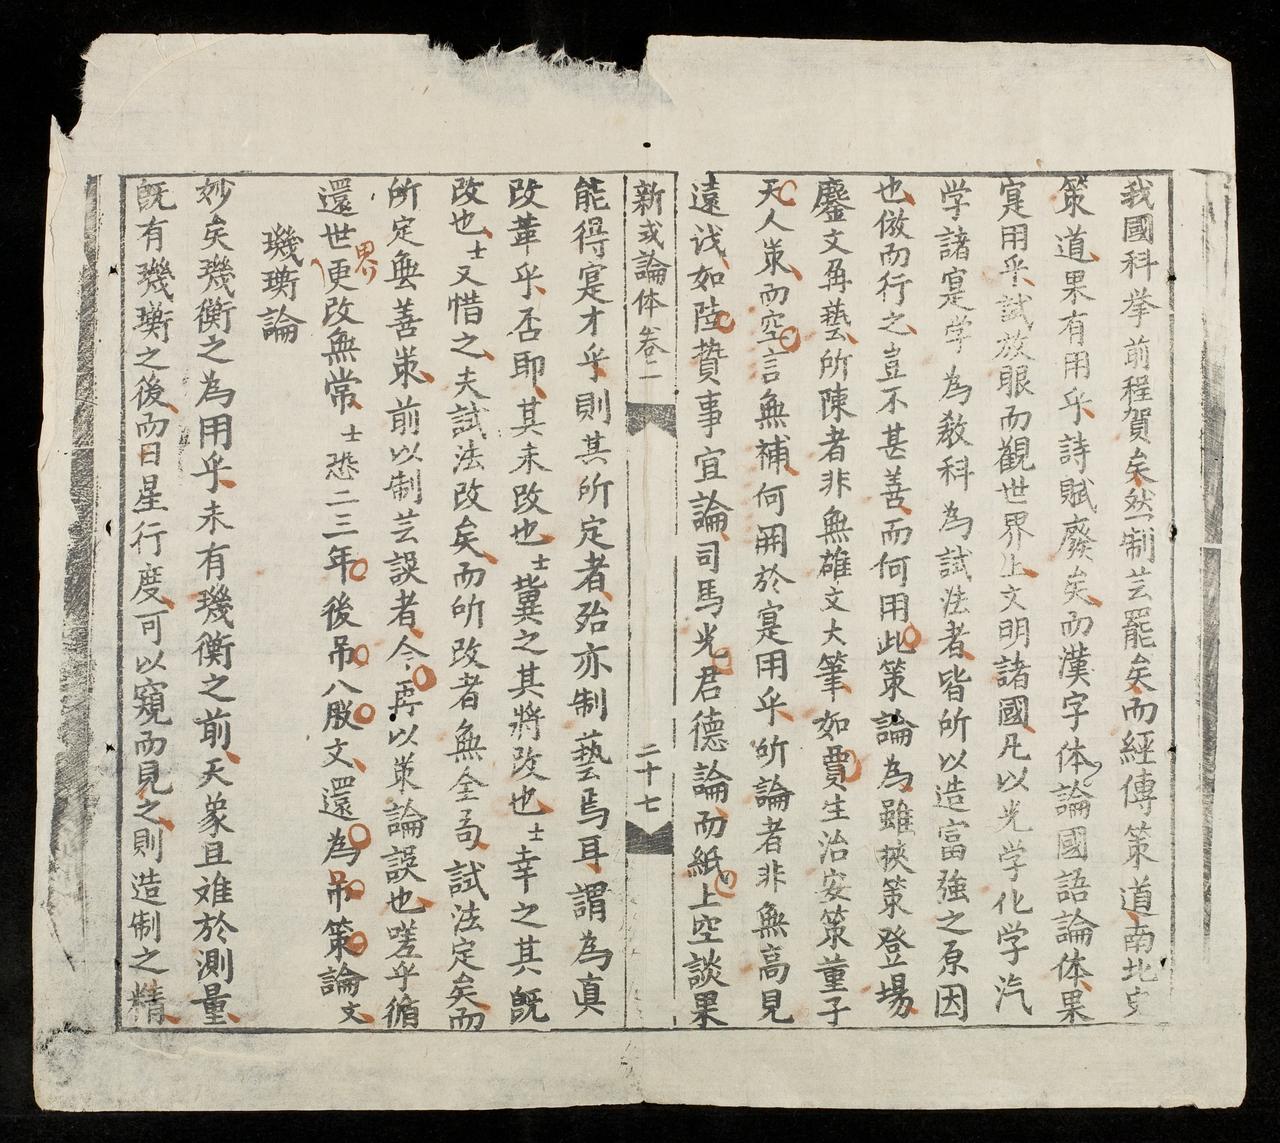 我國科挙前程賀矣然制芸罷矣而經傳策道南北史
策道果有用乎詩賦廢矣而漢字体論國語論体果
寔用乎試放眼而觀世界上文明諸國凡以光学化学汽
学諸寔学為教科為試法者皆所以造富強之原因
也倣而行之豈不甚善而何用此策論為雖挾策登場
鏖文再藝所陳者非無雄文大筆如賈生治安策董子
天人策而空言無補何関於寔用乎所論者非無高見
遠识如陸贄事宜論司馬光君德論而紙上空談果
新或論体卷二 二十七
能得寔才乎則其所定者殆亦制藝焉耳謂為真
改革乎否耶其未改也士冀之其將改也士幸之其既
改也士又惜之夫試法改矣而所改者無全局試法定矣而
所定無善策前以制芸誤者今再以策論誤也嗟乎循
還世界更改無常士恐二三年後吊八股文還為吊策論文
璣衡論
妙矣璣衡之為用乎未有璣衡之前天象且难於測量
既有璣衡之後而日星行度可以窺而見之則造制之精